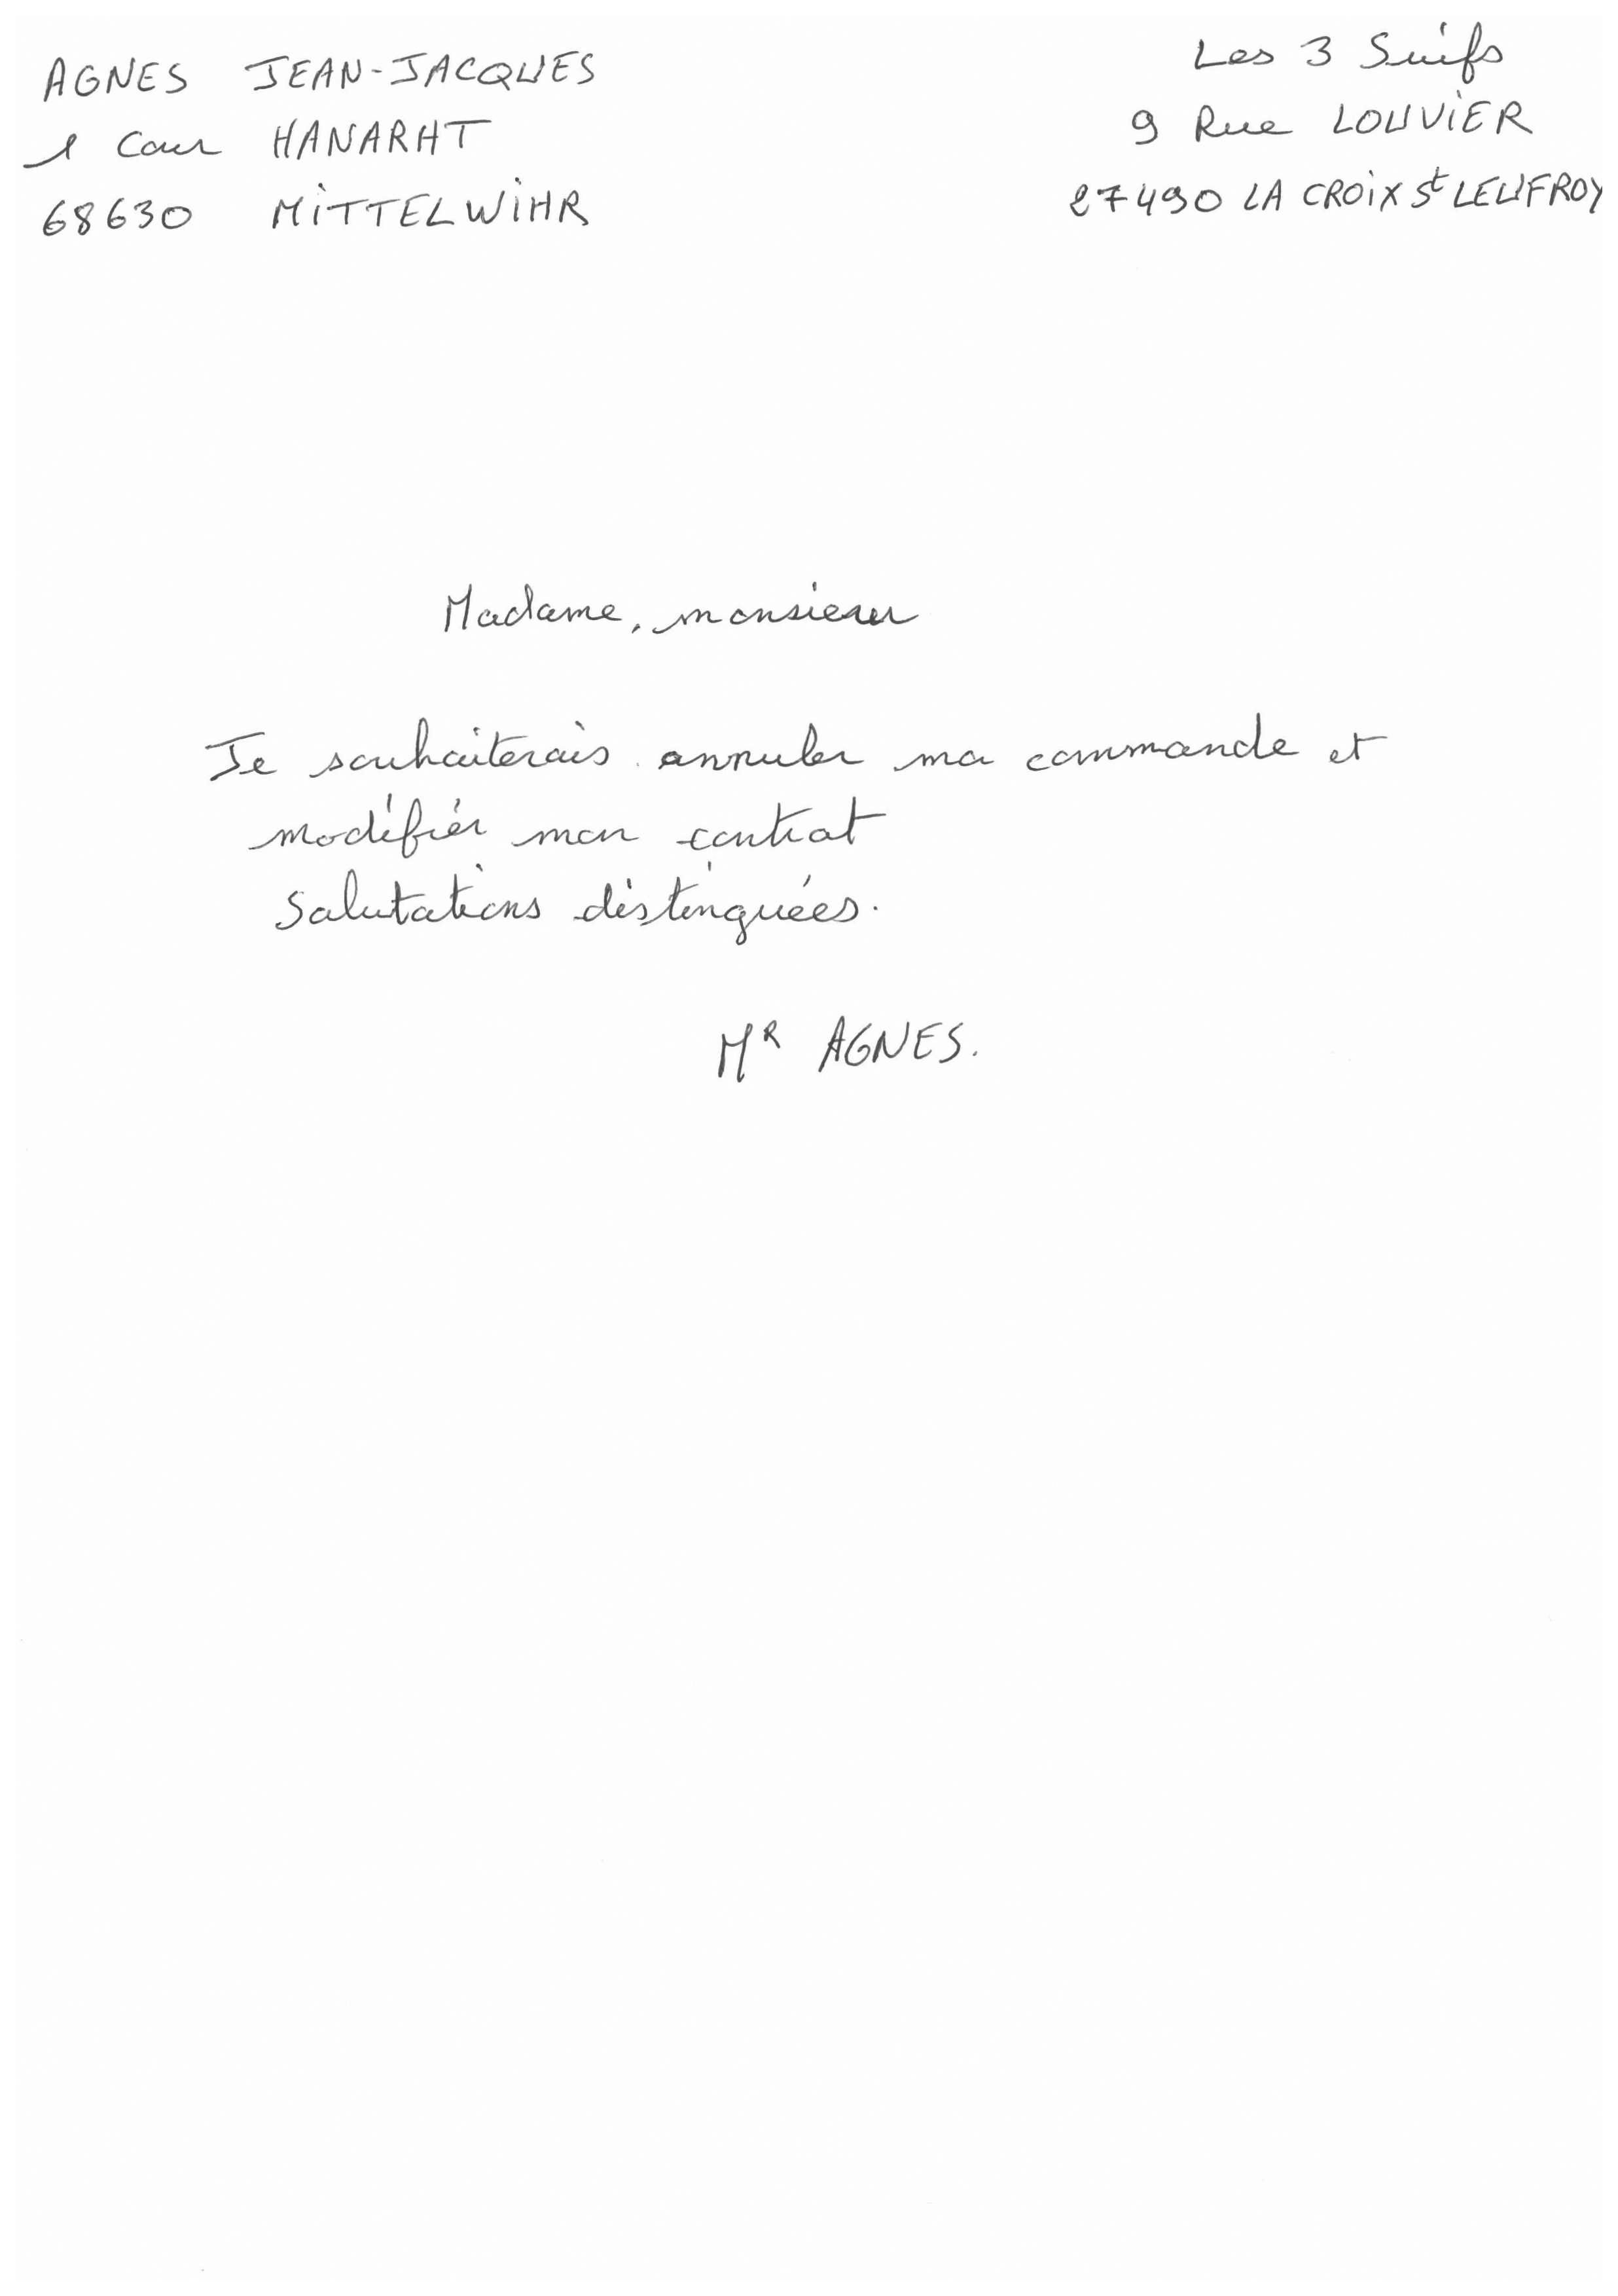 AGNES JEAN-JACQUES
1 Cour HANARHT
68630 MITTELWIHR
Les 3 Suifs
9 Rue LOUVIER
27490 LA CROIX St LEUFROY
Madame, monsieur
Je souhaiterais annuler ma commande et
modifier mon contrat
Salutations distinguées.
MR AGNES.